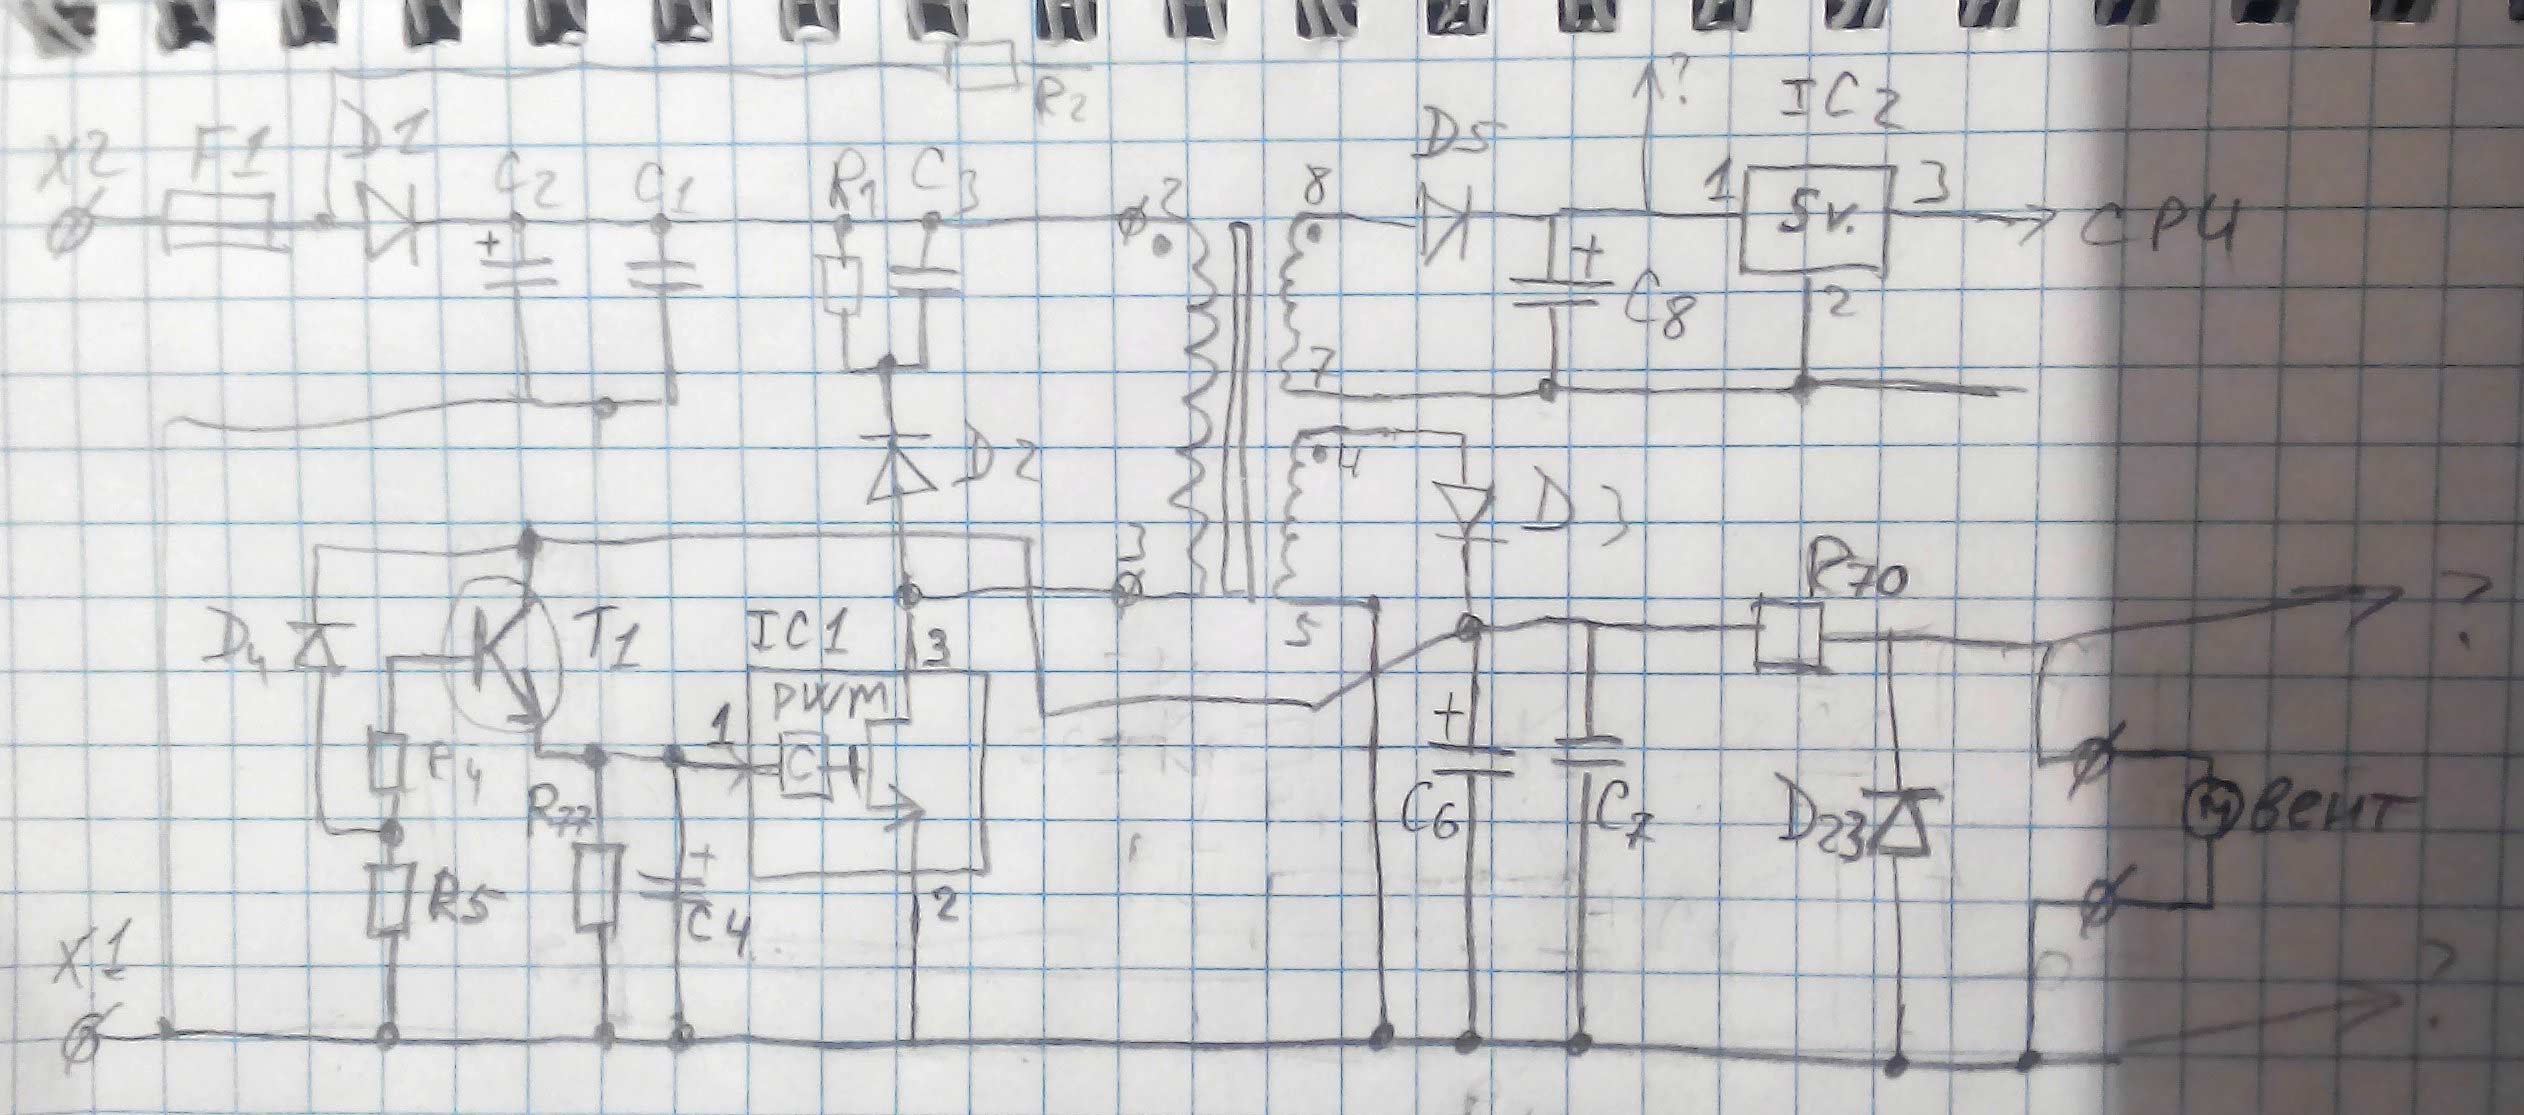 R2
X2
F1
D1
C2
+
C1
R1
C3
2
8
D5
?
IC2
1
5v.
3
CPU
+
C8
2
7
D2
4
D3
3
5
R70
?
D4
T1
IC1
3
PWM
1
C
R77
R5
+
C4
2
+
C6
C7
D23
M
вент
X1
?